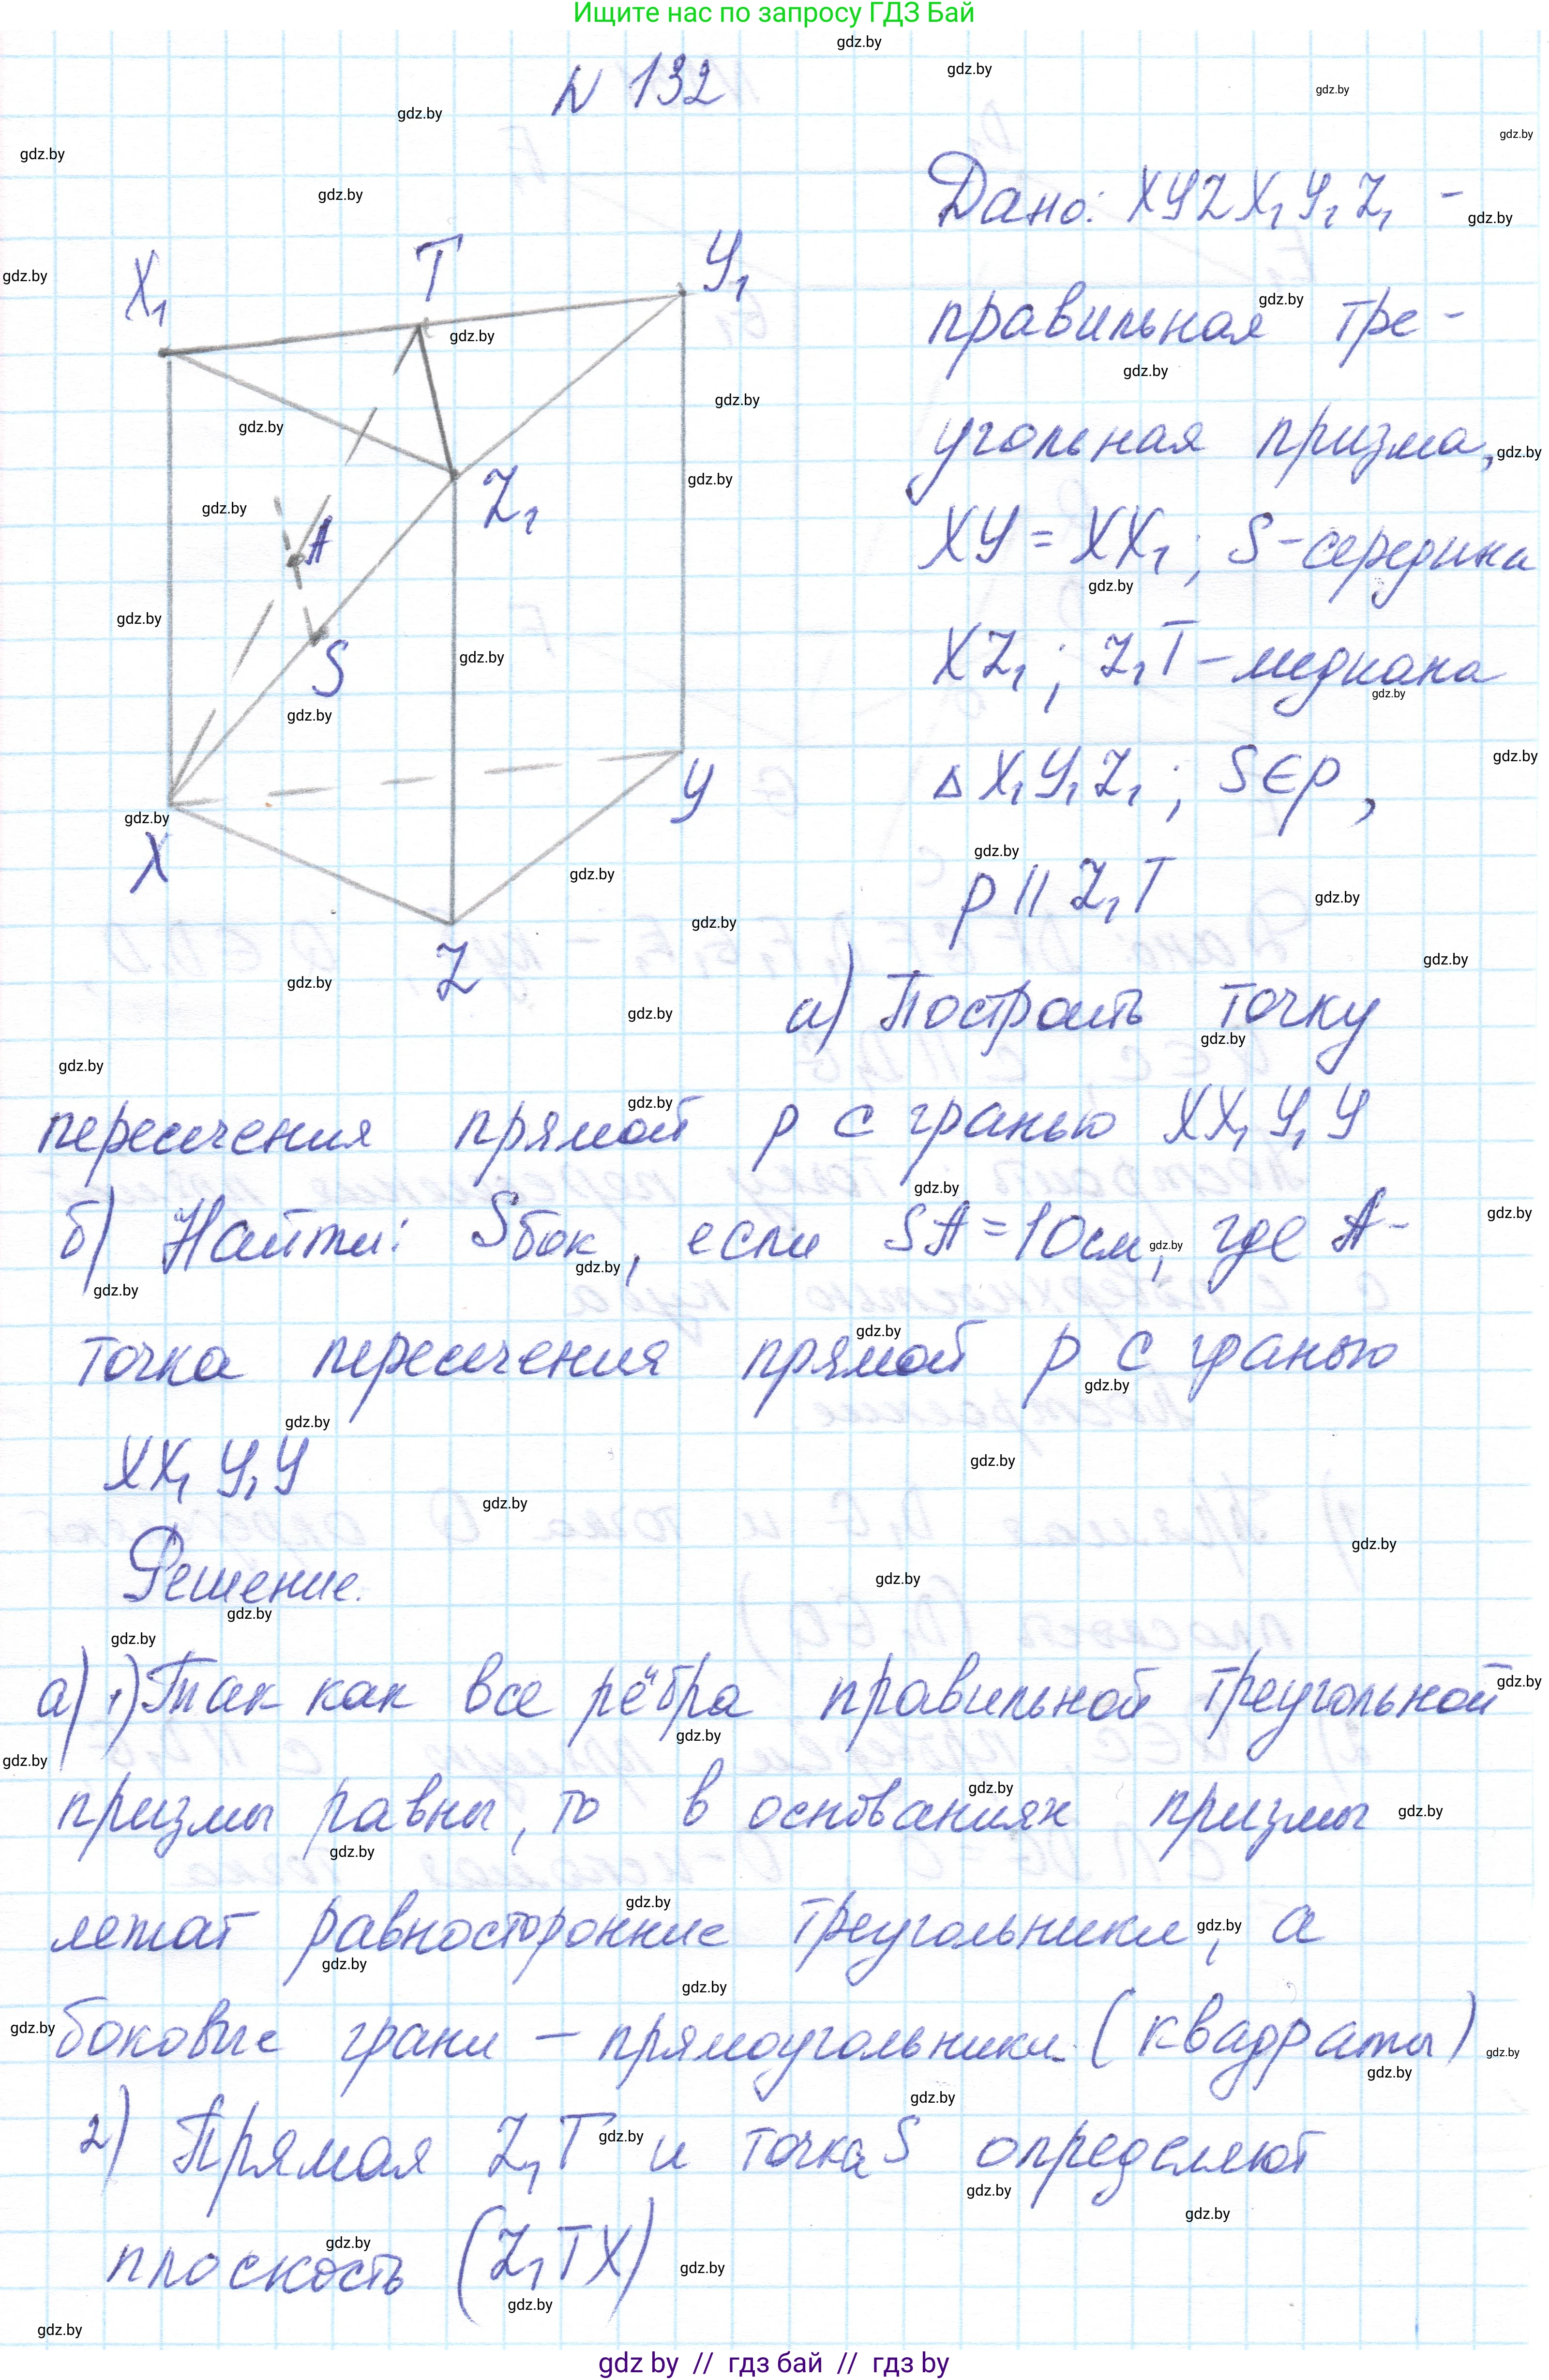 Ищите нас по запросу ГДЗ Бай
N 132
Дано: XYZX₁Y₁Z₁ -
правильная тре-
угольная призма,
XY = XX₁; S-середина
XZ₁; Z₁T - медиана
△ X₁Y₁Z₁; S∈p,
p || Z₁T
X₁
T
Y₁
Z₁
A
S
X
Y
Z
а) Построить точку
пересечения прямой p с гранью XX₁Y₁Y
б) Найти: Sбок, если SA=10см, где A-
точка пересечения прямой p с гранью
XX₁Y₁Y
Решение.
а) 1) Так как все рёбра правильной треугольной
призмы равны, то в основаниях призмы
лежат равносторонние треугольники, а
боковые грани - прямоугольники (квадраты)
2) Прямая Z₁T и точка S определяют
плоскость (Z₁TX)
gdz by // гдз бай // гдз by
gdz.by